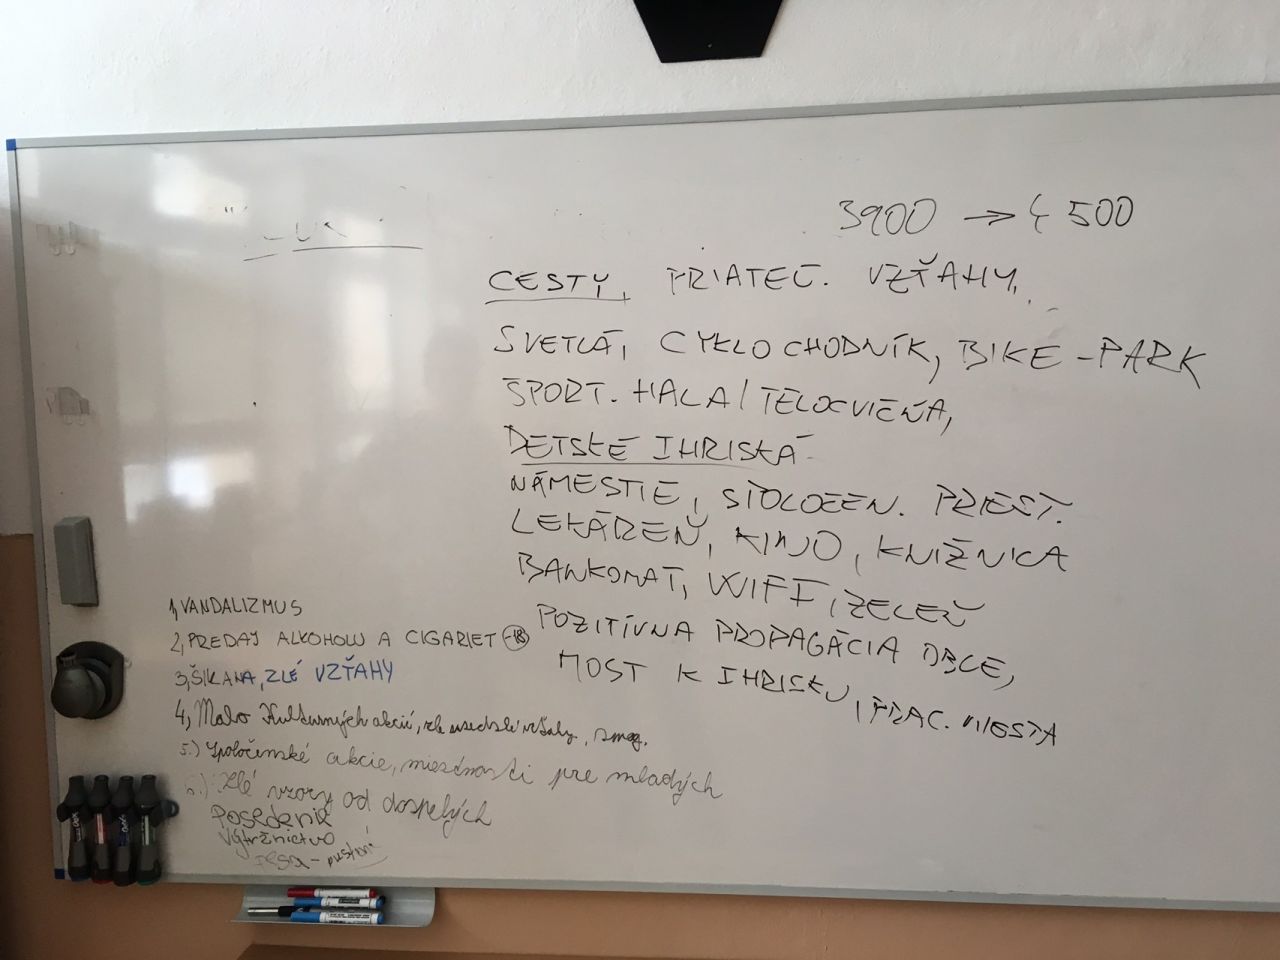 3900 → 4 500
CESTY, PRIATEĽ. VZŤAHY,
SVETLÁ, CYKLOCHODNÍK, BIKE-PARK
ŠPORT. HALA/TELOCVIČŇA,
DETSKÉ IHRISKÁ
NÁMESTIE, SPOLOČEN. PRIEST.
LEKÁREŇ, KINO, KNIŽNICA
BANKOMAT, WIFI, ZELEŇ
POZITÍVNA PROPAGÁCIA OBCE,
MOST K IHRISKU, PRAC. MIESTA
1, VANDALIZMUS
2, PREDAJ ALKOHOLU A CIGARIET -18
3, ŠIKANA, ZLÉ VZŤAHY
4, Malo kultúrnych akcií, zlé susedské vzťahy, smog.
5.) Spoločenské akcie, miestnosti pre mladých
6.) Zlé vzory od dospelých
Posedenie
Výtržníctvo